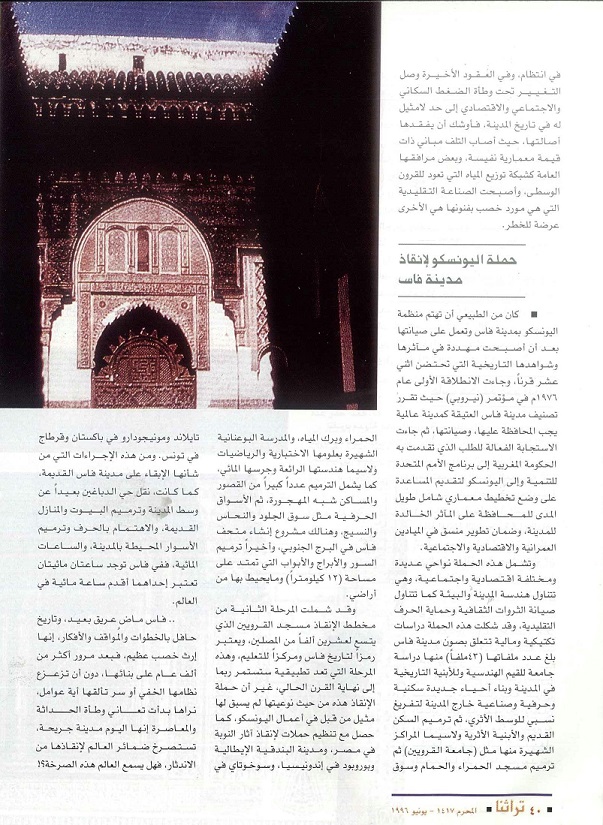 في انتظام، وفي العُقود الأخيرة وصل
التغيير تحت وطأة الضغط السكاني
والاجتماعي والاقتصادي إلى حد لامثيل
له في تاريخ المدينة، فأوشك أن يفقدها
أصالتها، حيث أصاب التلف مباني ذات
قيمة معمارية نفيسة، وبعض مرافقها
العامة كشبكة توزيع المياه التي تعود للقرون
الوسطى، وأصبحت الصناعة التقليدية
التي هي مورد خصب بفنونها هي الأخرى
عرضة للخطر.
حملة اليونسكو لإنقاذ
مدينة فاس
■ كان من الطبيعي أن تهتم منظمة
اليونسكو بمدينة فاس وتعمل على صيانتها
بعد أن أصبحت مهددة في مآثرها
وشواهدها التاريخية التي تحتضن اثني
عشر قرناً، وجاءت الانطلاقة الأولى عام
١٩٧٦م في مؤتمر (نيروبي) حيث تقرر
تصنيف مدينة فاس العتيقة كمدينة عالمية
يجب المحافظة عليها، وصيانتها، ثم جاءت
الاستجابة الفعالة للطلب الذي تقدمت به
الحكومة المغربية إلى برنامج الأمم المتحدة
للتنمية وإلى اليونسكو لتقديم المساعدة
على وضع تخطيط معماري شامل طويل
المدى للمحافظة على المآثر الخالدة
للمدينة، وضمان تطوير منسق في الميادين
العمرانية والاقتصادية والاجتماعية.
وتشمل هذه الحملة نواحي عديدة
ومختلفة اقتصادية واجتماعية، وهي
تتناول هندسة المدينة والبيئة كما تتناول
صيانة الثروات الثقافية وحماية الحرف
التقليدية، وقد شكلت هذه الحملة دراسات
تكتيكية ومالية تتعلق بصون مدينة فاس
بلغ عدد ملفاتها (٤٣ملفاً) منها دراسة
جامعة للقيم الهندسية وللأبنية التاريخية
في المدينة وبناء أحياء جديدة سكنية
وحرفية وصناعية خارج المدينة لتفريغ
نسبي للوسط الأثري، ثم ترميم السكن
القديم والأبنية الأثرية ولاسيما المراكز
الشهيرة منها مثل (جامعة القرويين) ثم
ترميم مسجد الحمراء والحمام وسوق
الحمراء وبرك المياه، والمدرسة البوعنانية
الشهيرة بعلومها الاختبارية والرياضيات
ولاسيما هندستها الرائعة وجرسها المائي،
كما يشمل الترميم عدداً كبيراً من القصور
والمساكن شبه المهجورة، ثم الأسواق
الحرفية مثل سوق الجلود والنحاس
والنسيج، وهنالك مشروع إنشاء متحف
فاس في البرج الجنوبي، وأخيراً ترميم
السور والأبراج والأبواب التي تمتد على
مساحة (١٢ كيلومتراً) ومايحيط بها من
أراضي.
وقد شملت المرحلة الثانية من
مخطط الإنقاذ مسجد القرويين الذي
يتسع لعشرين ألفاً من المصلين، ويعتبر
رمزاً لتاريخ فاس ومركزاً للتعليم، وهذه
المرحلة التي تعد تطبيقية ستستمر ربما
إلى نهاية القرن الحالي، غير أن حملة
الإنقاذ هذه من حيث نوعيتها لم يسبق لها
مثيل من قبل في أعمال اليونسكو، كما
حصل مع تنظيم حملات لإنقاذ آثار النوبة
في مصر، ومدينة البندقية الإيطالية
وبوروبود في إندونيسيا، وسوخوتاي في
تايلاند ومونيجودارو في باكستان وقرطاج
في تونس. ومن هذه الإجراءات التي من
شأنها الإبقاء على مدينة فاس القديمة،
كما كانت، نقل حي الدباغين بعيداً عن
وسط المدينة وترميم البيوت والمنازل
القديمة، والاهتمام بالحرف وترميم
الأسوار المحيطة بالمدينة، والساعات
المائية، ففي فاس توجد ساعتان مائيتان
تعتبر إحداهما أقدم ساعة مائية في
العالم.
.. فاس ماض عريق بعيد، وتاريخ
حافل بالخطوات والمواقف والأفكار، إنها
إرث خصب عظيم، فبعد مرور أكثر من
ألف عام على بنائها، دون أن تزعزع
نظامها الخفي أو سر تآلقها أية عوامل،
نراها بدأت تعاني وطأة الحداثة
والمعاصرة إنها اليوم مدينة جريحة،
تستصرخ ضمائر العالم لإنقاذها من
الاندثار، فهل يسمع العالم هذه الصرخة؟!
■ ٤٠ تراثنا ■ المحرم ١٤١٧ - يونيو ١٩٩٦